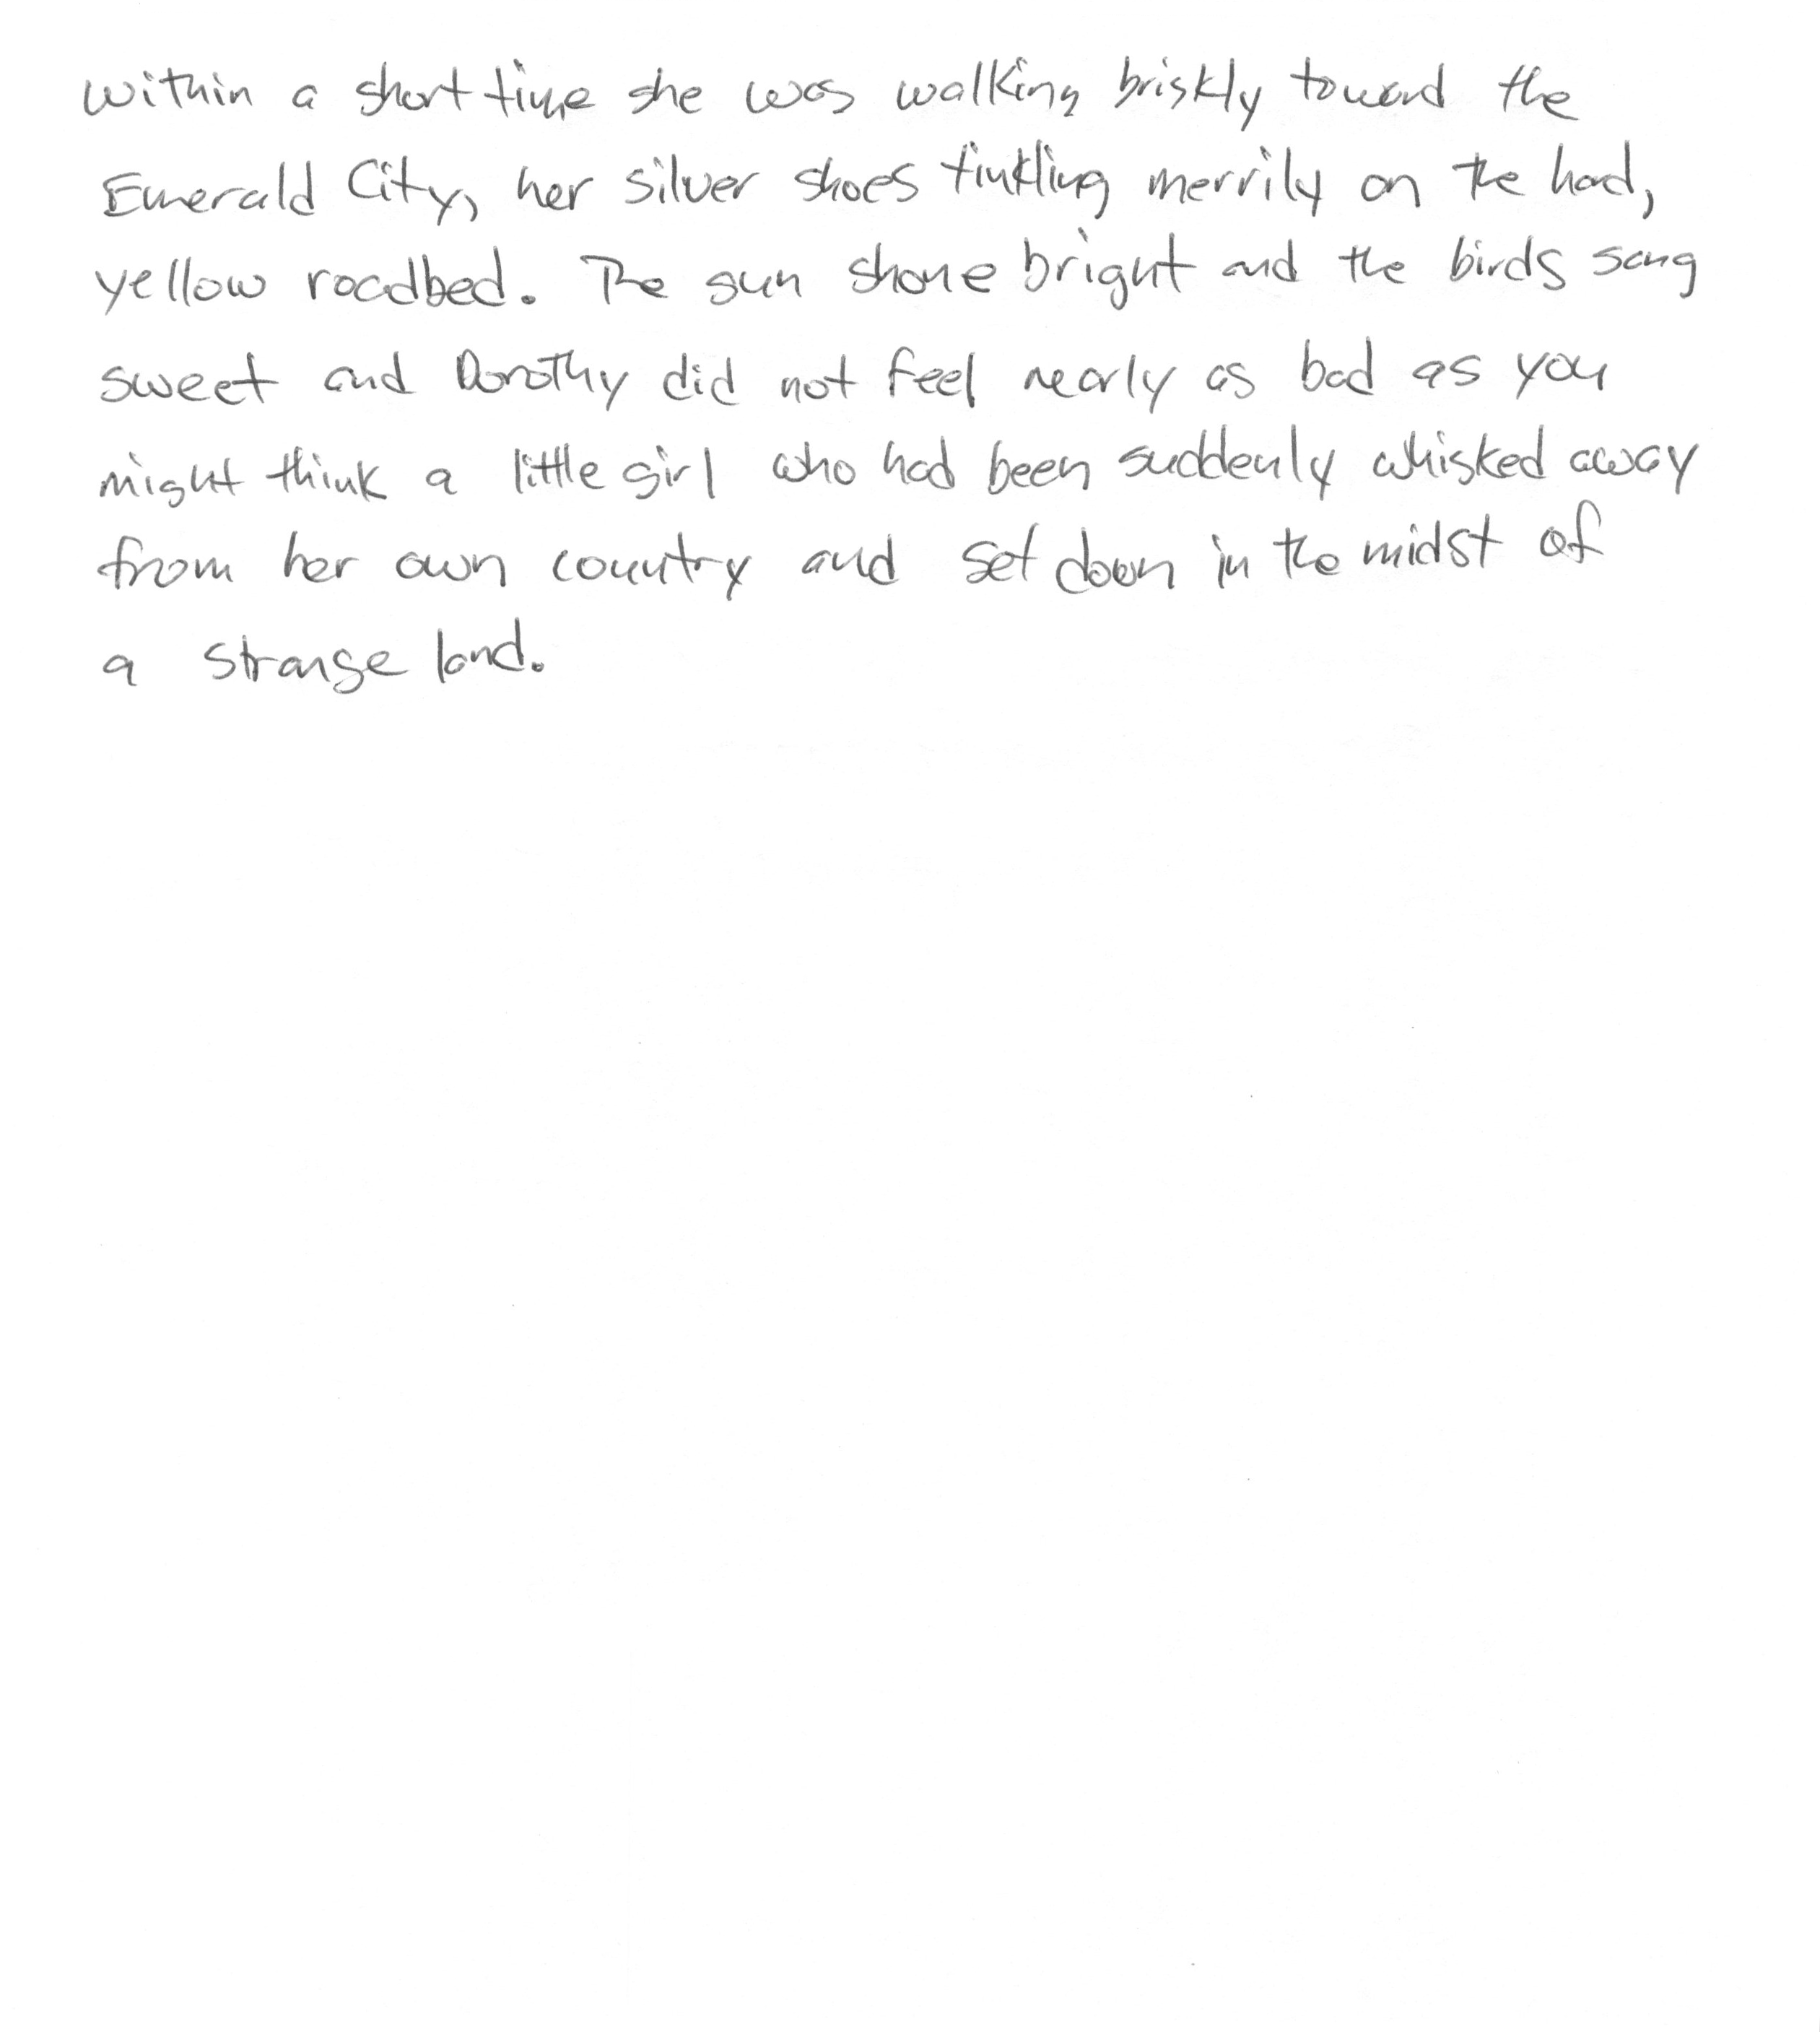 within a short time she was walking briskly toward the
Emerald City, her silver shoes tinkling merrily on the hard,
yellow roadbed. The sun shone bright and the birds sang
sweet and Dorothy did not feel nearly as bad as you
might think a little girl who had been suddenly whisked away
from her own country and set down in the midst of
a strange land.